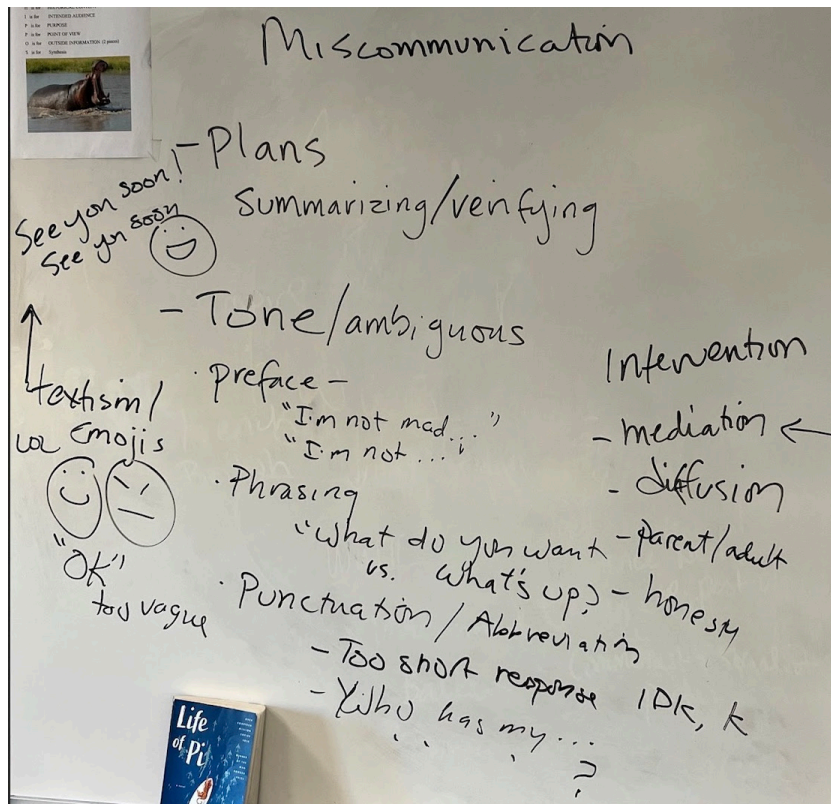 I is for INTENDED AUDIENCE
P is for PURPOSE
P is for POINT OF VIEW
O is for OUTSIDE INFORMATION (2 pieces)
S is for Synthesis
Miscommunication
- Plans
summarizing/verifying
See you soon!
See you soon
- Tone/ambiguous
· preface -
"I'm not mad..."
"I'm not ...
· Phrasing
"What do you want
vs. What's up?
· Punctuation / Abbreviation
- Too short response IDK, k
- Who has my ...
?
textism/
LOL Emojis
"OK"
too vague
Intervention
- mediation ←
- diffusion
- Parent/adult
- honesty
Life
of Pi